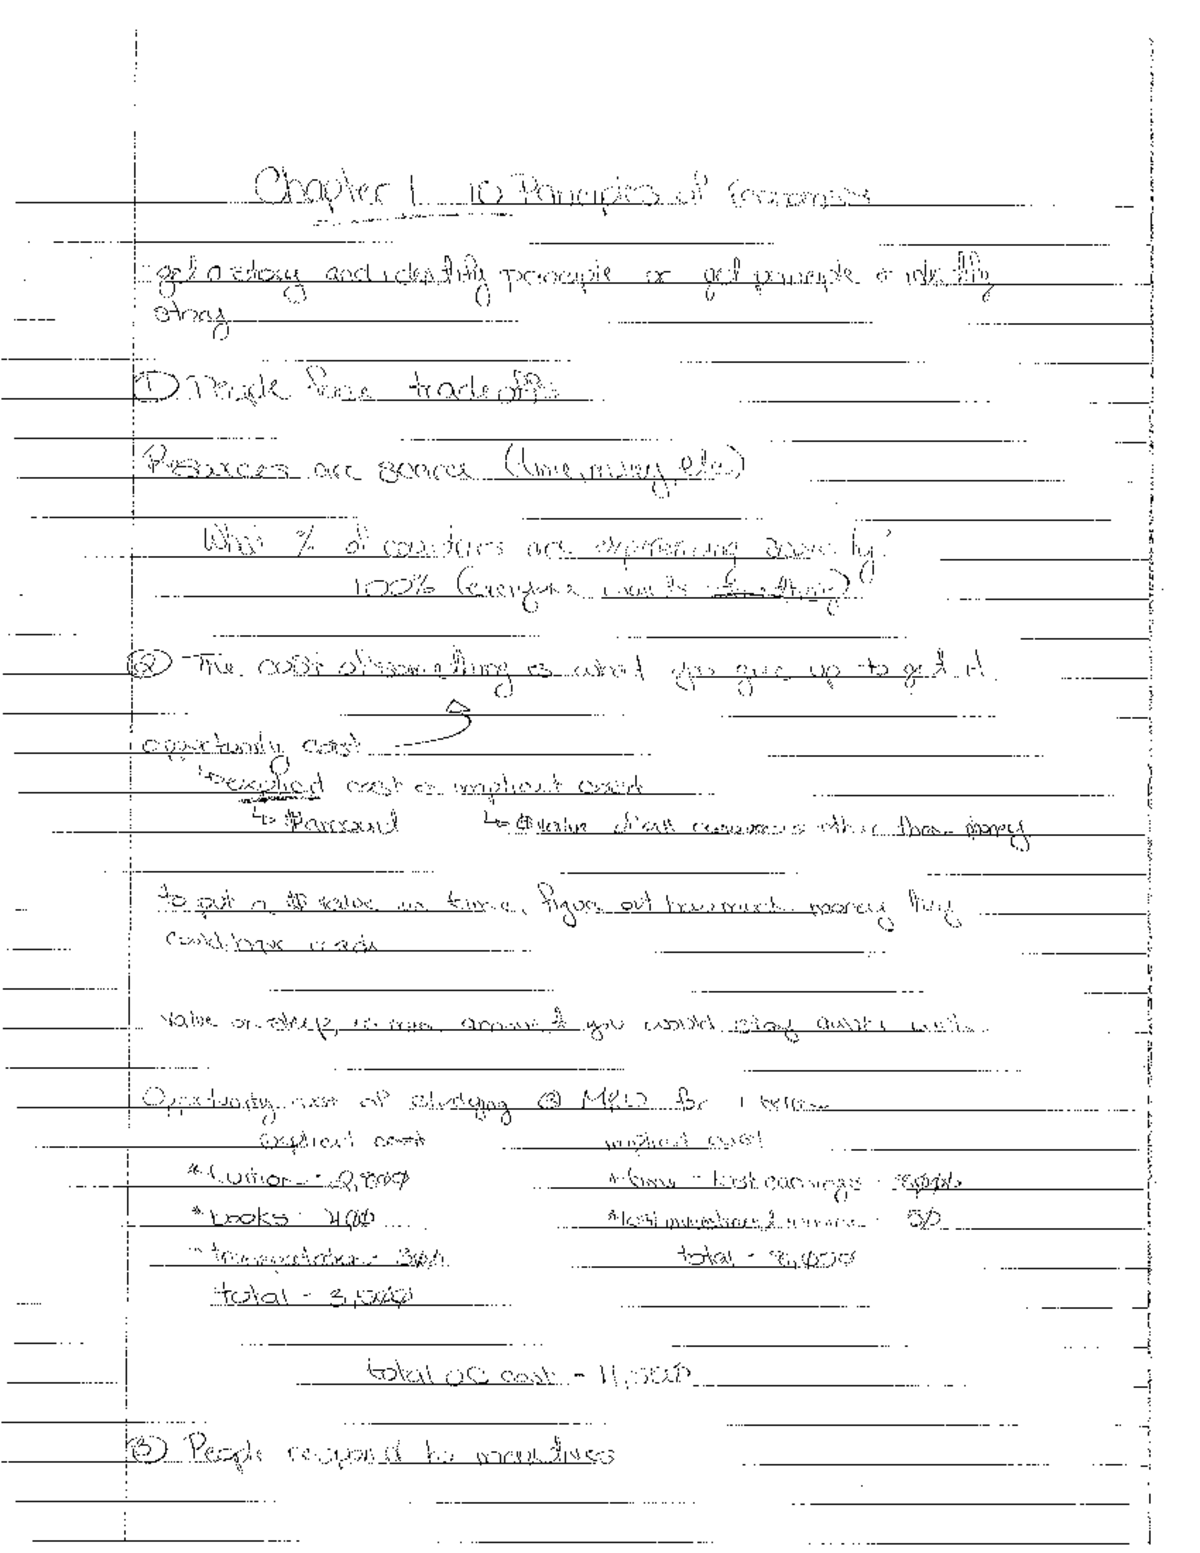 Chapter 1 10 Principles of Economics
get a story and identify principle or get principle & identify
story
① People face tradeoffs
Resources are scarce (time, money, etc)
What % of countries are experiencing scarcity?
100% (everyone wants something)
② The cost of something is what you give up to get it
opportunity cost
↳ explicit cost or implicit cost
↳ $ amount ↳ $ value of all resources other than money
to put a $ value on time, figure out how much money they
could have made
value on sleep, amount you would stay awake
Opportunity cost of studying @ for 1
explicit cost implicit cost
* tuition - 2,800 time - lost earnings -
* books - 400 * lost - 50
* transportation - 300 total - 8,050
total - 3,500
total OC cost -
③ People respond to incentives